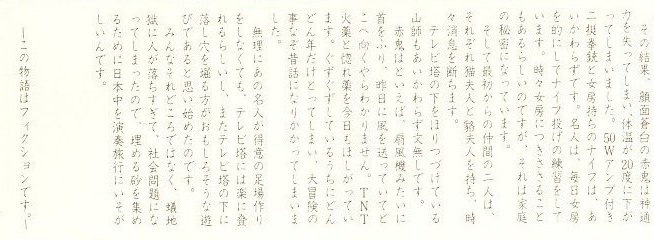 その結果、顔面蒼白の赤鬼は神通
力を失ってしまい、体温が20度に下が
ってしまいました。50Wアンプ付き
二挺拳銃と女房持ちのナイフは、あ
いかわらずです。名人は、毎日女房
を的にしてナイフ投げの練習をして
います。時々女房につきささること
もあるらしいのですが、それは家庭
の秘密になっています。
そして最初からの仲間の二人は、
それぞれ猫夫人と猫夫人を持ち、時
々消息を断ちます。
テレビ塔の下をほりつづけている
山師もあいかわらず文無しです。
赤鬼はといえば、扇風機みたいに
首をふり、昨日に風を送っていてど
こへ向くやらわかりません。TNT
火薬と惚れ薬を今日もほしがってい
ます。ぐずぐずしているうちにどん
どん年だけとってしまい、大冒険の
事なぞ昔話になりかかってしまいま
した。
無理にあの名人が得意の足場作り
をしなくても、テレビ塔には楽に登
れるらしいし、またテレビ塔の下に
落し穴を堀る方がおもしろそうな遊
びであると思い始めたのです。
みんなそれどころではなく、蟻地
獄に人が落ちすぎて、社会問題にな
ってしまったので、埋める砂を集め
るために日本中を演奏旅行にいそが
しいんです。
―この物語はフィクションです。―